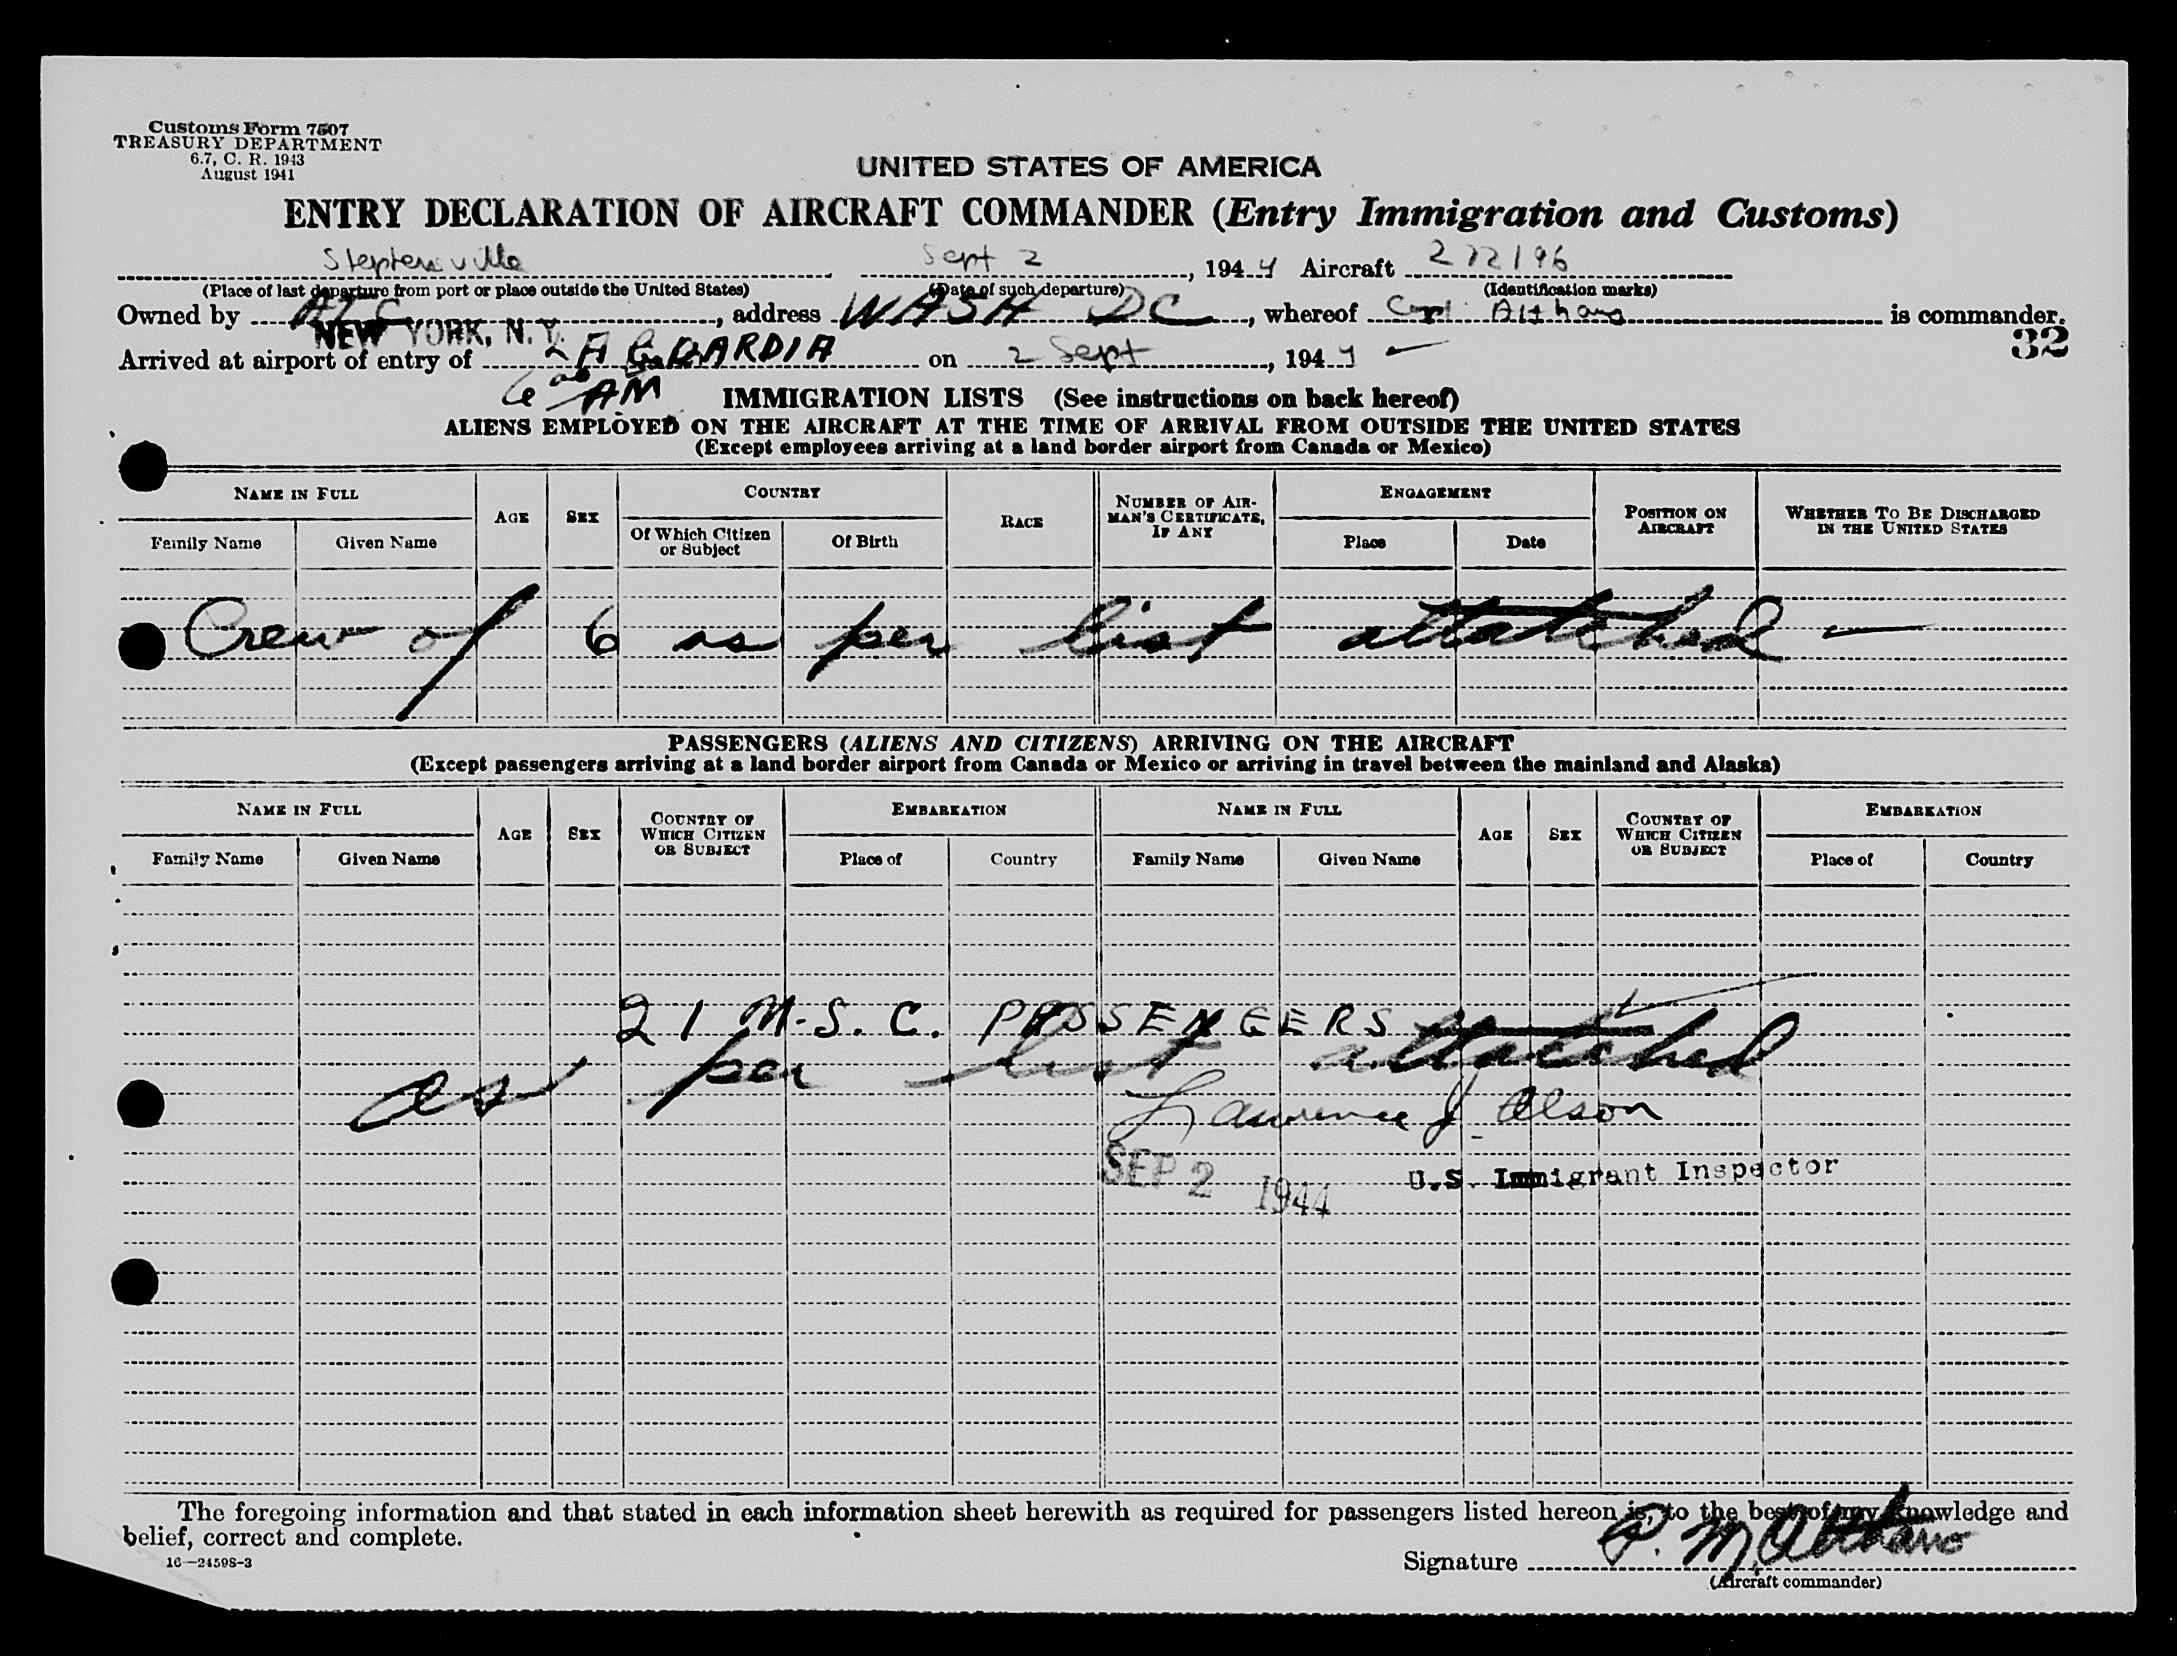 Customs Form 7507
TREASURY DEPARTMENT
6.7, C. R. 1943
August 1941
UNITED STATES OF AMERICA
ENTRY DECLARATION OF AIRCRAFT COMMANDER (Entry Immigration and Customs)
Stephenville Sept 2, 1944 Aircraft 272196
(Place of last departure from port or place outside the United States) (Date of such departure) (Identification marks)
Owned by ATC, address WASH DC, whereof Capt. Althaus is commander.
NEW YORK, N. Y. 32
Arrived at airport of entry of LA GUARDIA on 2 Sept, 1944
6 00 AM IMMIGRATION LISTS (See instructions on back hereof)
ALIENS EMPLOYED ON THE AIRCRAFT AT THE TIME OF ARRIVAL FROM OUTSIDE THE UNITED STATES
(Except employees arriving at a land border airport from Canada or Mexico)
NAME IN FULL AGE SEX COUNTRY RACE NUMBER OF AIRMAN'S CERTIFICATE, IF ANY ENGAGEMENT POSITION ON AIRCRAFT WHETHER TO BE DISCHARGED IN THE UNITED STATES
Family Name Given Name Of Which Citizen or Subject Of Birth Place Date
Crew of 6 as per list attatched —
PASSENGERS (ALIENS AND CITIZENS) ARRIVING ON THE AIRCRAFT
(Except passengers arriving at a land border airport from Canada or Mexico or arriving in travel between the mainland and Alaska)
NAME IN FULL AGE SEX COUNTRY OF WHICH CITIZEN OR SUBJECT EMBARKATION NAME IN FULL AGE SEX COUNTRY OF WHICH CITIZEN OR SUBJECT EMBARKATION
Family Name Given Name Place of Country Family Name Given Name Place of Country
21 M.S.C. PASSENGERS
as per list attatched
Lawrence J. Olson
SEP 2 1944 U.S. Immigrant Inspector
The foregoing information and that stated in each information sheet herewith as required for passengers listed hereon is, to the best of my knowledge and
belief, correct and complete.
16—24598-3
Signature P. M. Althaus
(Aircraft commander)